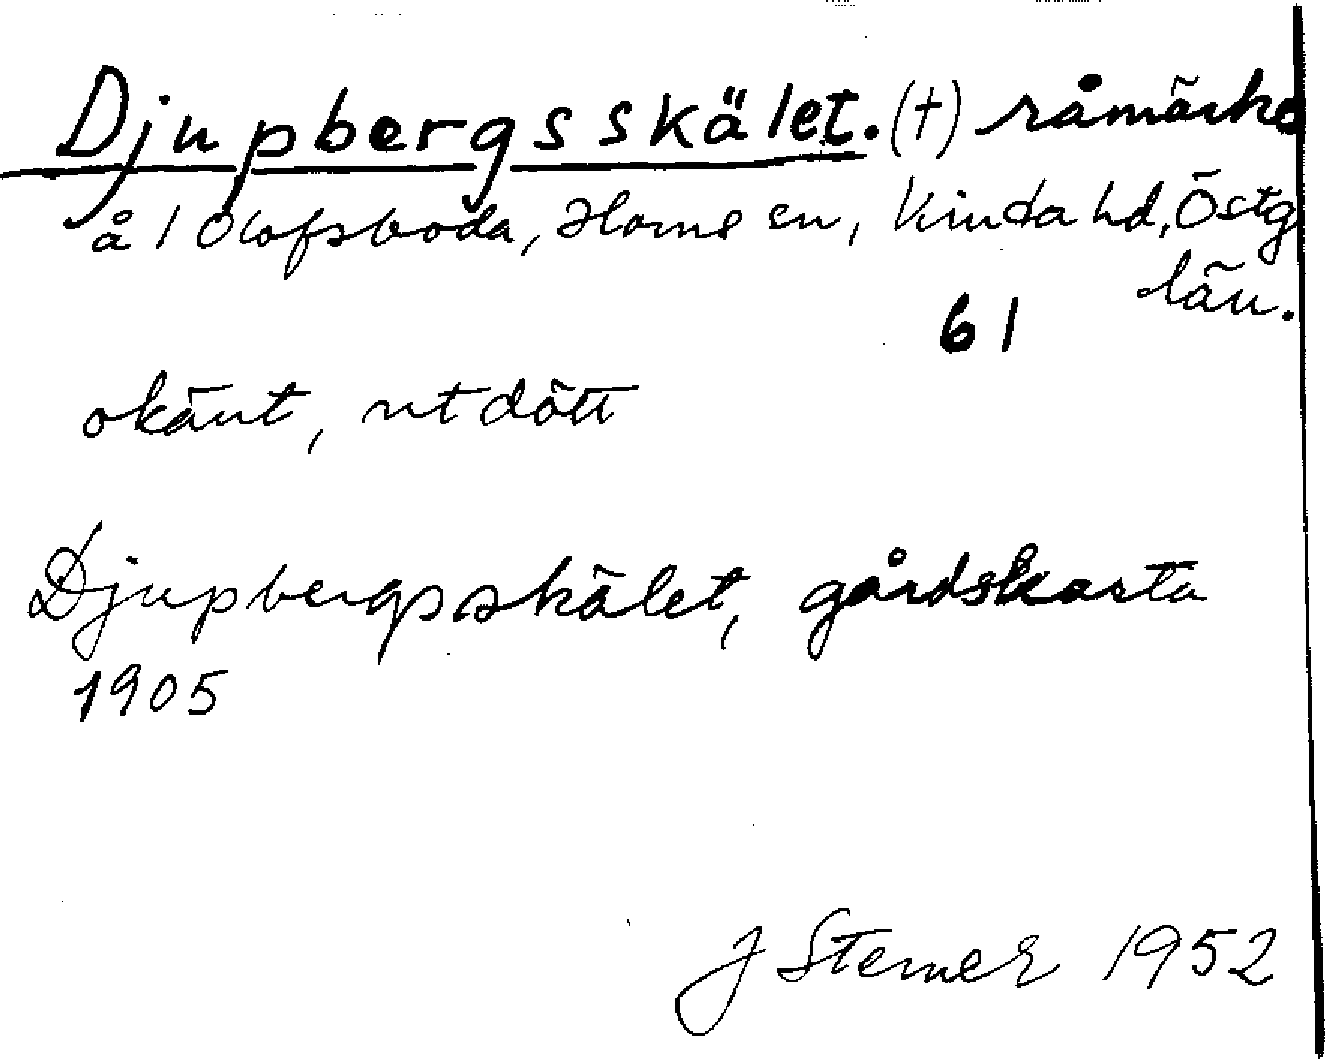 Djupbergsskälet. (†) råmärke
å 1 Olofsboda, Horns sn, Kinda hd, Östg
län.
61
okänt, utdött
Djupbergsskälet, gårdskarta
1905
J Sterner 1952